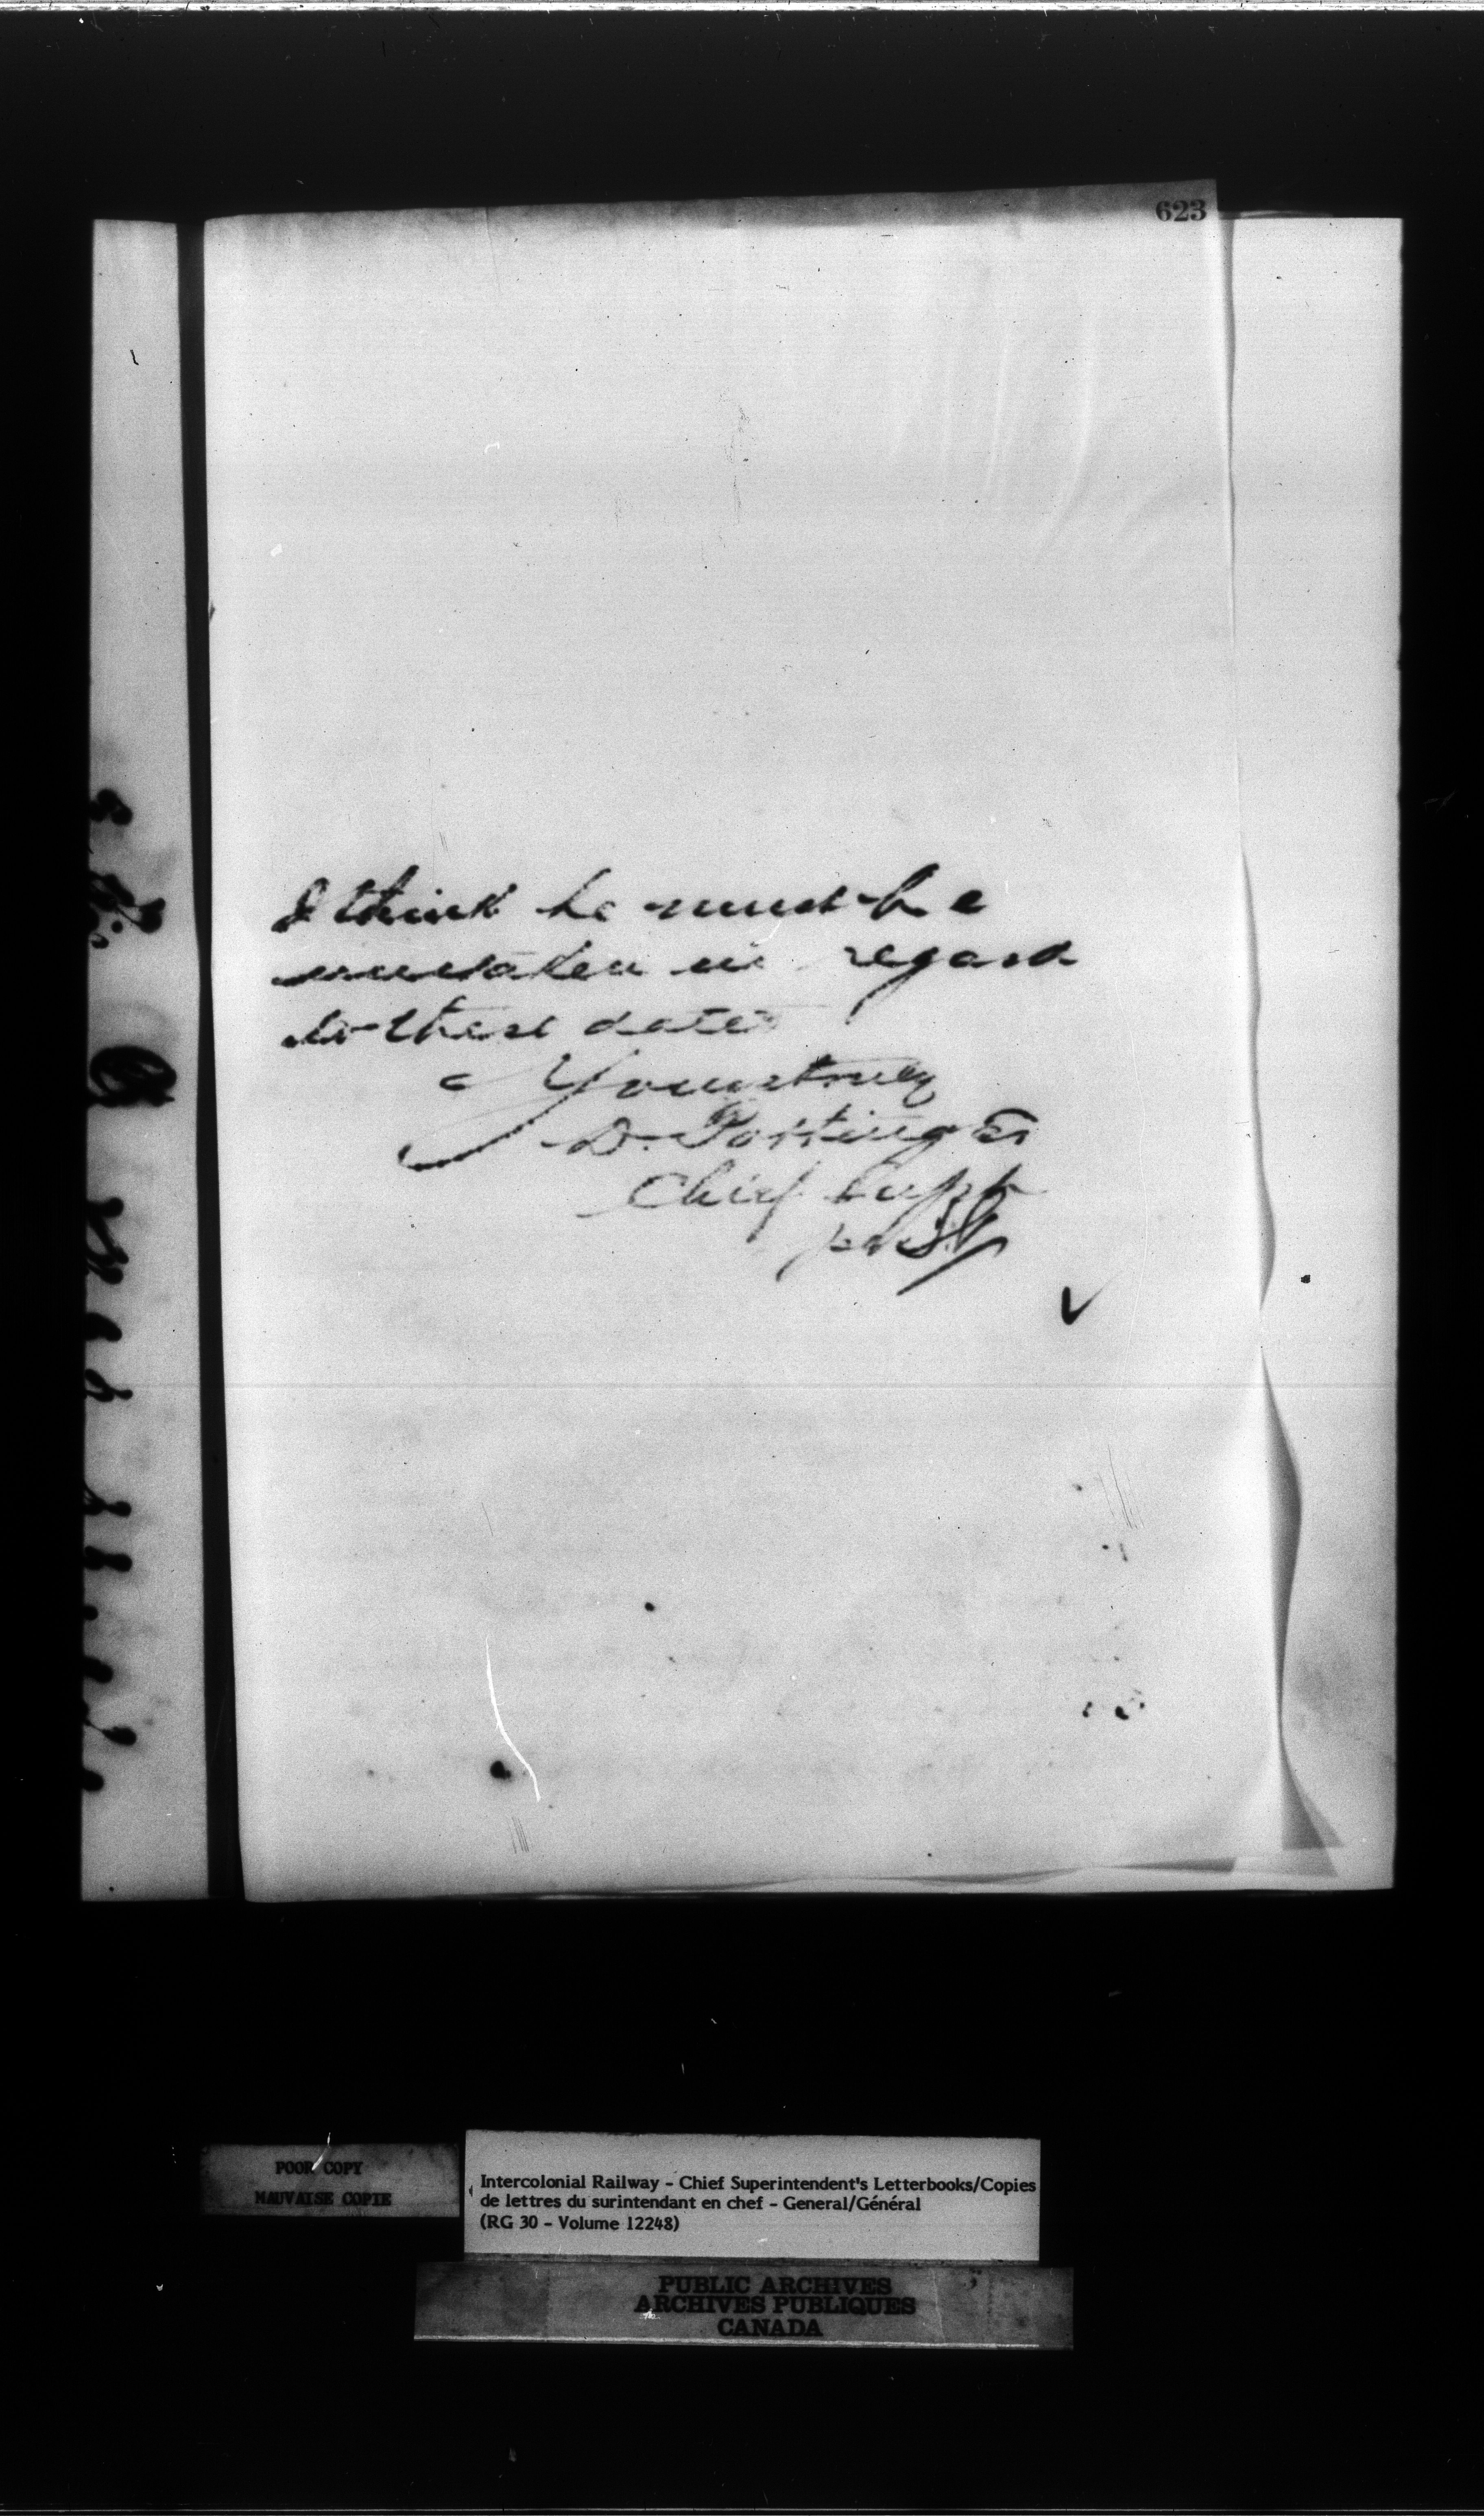 623
I think he must be
mistaken in regard
to these dates
Yours truly
D. Pottinger
Chief Supt
per
POOR COPY
MAUVAISE COPIE
Intercolonial Railway - Chief Superintendent's Letterbooks/Copies
de lettres du surintendant en chef - General/Général
(RG 30 - Volume 12248)
PUBLIC ARCHIVES
ARCHIVES PUBLIQUES
CANADA